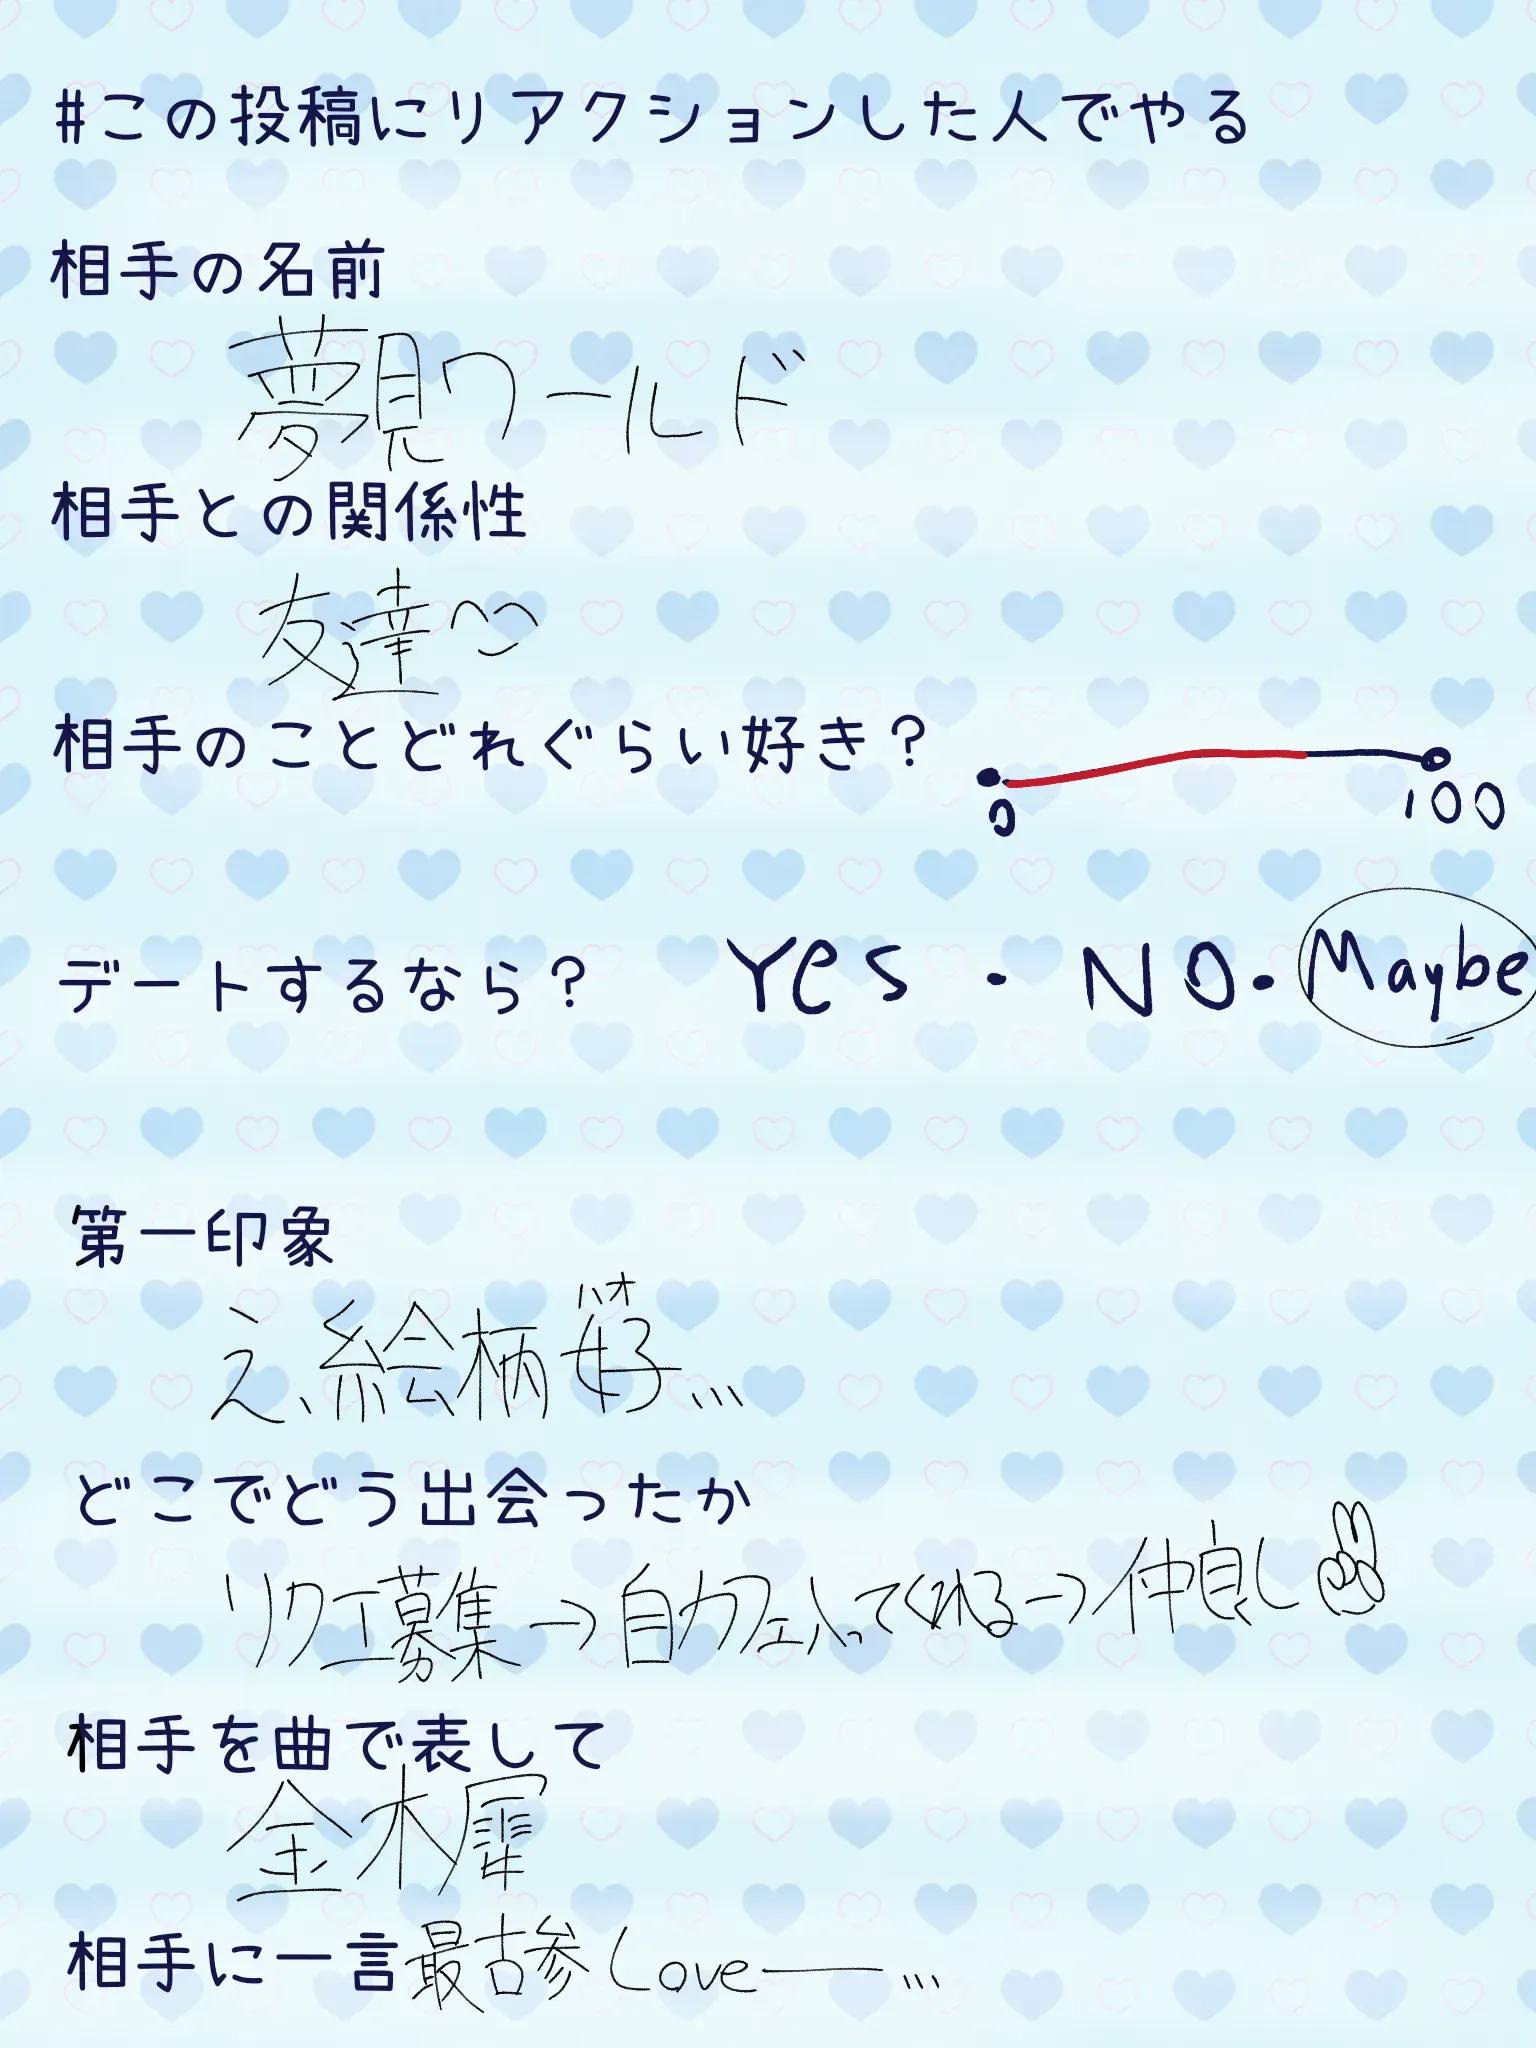 #この投稿にリアクションした人でやる
相手の名前
夢見ワールド
相手との関係性
友達
相手のことどれぐらい好き？
0 100
デートするなら？ Yes・NO・Maybe
第一印象
え、絵柄好...
どこでどう出会ったか
リクエ募集→自カフェ入ってくれる→仲良し
相手を曲で表して
金木犀
相手に一言 最古参Love―...